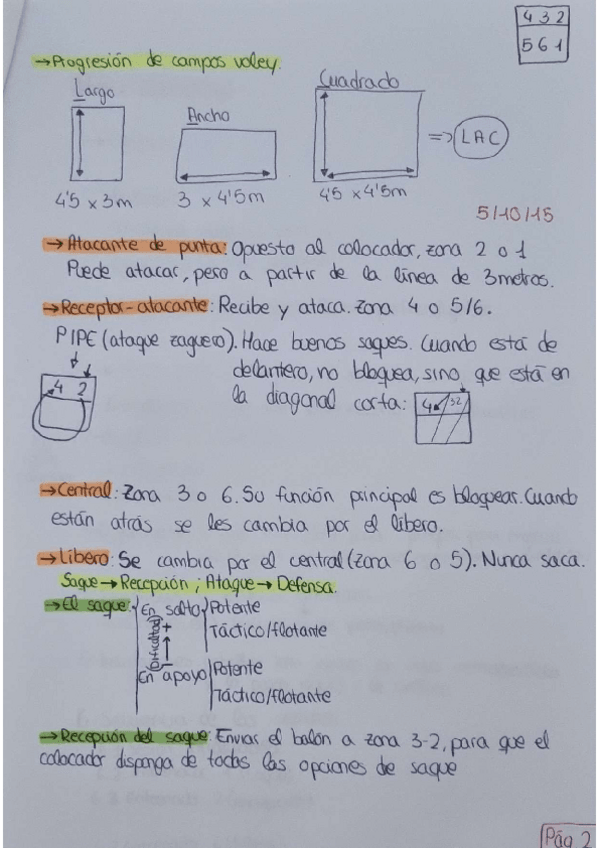 4 3 2
5 6 1
→Progresión de campos voley.
Largo
Ancho
Cuadrado
⇒ LAC
4'5 x 3m
3 x 4'5m
4'5 x 4'5m
5/10/15
→Atacante de punta: Opuesto al colocador, zona 2 o 1
Puede atacar, pero a partir de la línea de 3metros.
→Receptor-atacante: Recibe y ataca. Zona 4 o 5/6.
PIPE (ataque zaguero). Hace buenos saques. Cuando está de
delantero, no bloquea, sino que está en
la diagonal corta:
4 2
4 3 2
→Central: Zona 3 o 6. Su función principal es bloquear. Cuando
están atrás se les cambia por el libero.
→Libero: Se cambia por el central (zona 6 o 5). Nunca saca.
Saque→Recepción; Ataque→Defensa.
→El saque:
En salto
Potente
Táctico/flotante
(Dificultad)
+
-
En apoyo
Potente
Táctico/flotante
→Recepción del saque: Enviar el balón a zona 3-2, para que el
colocador disponga de todas las opciones de saque
Pág 2